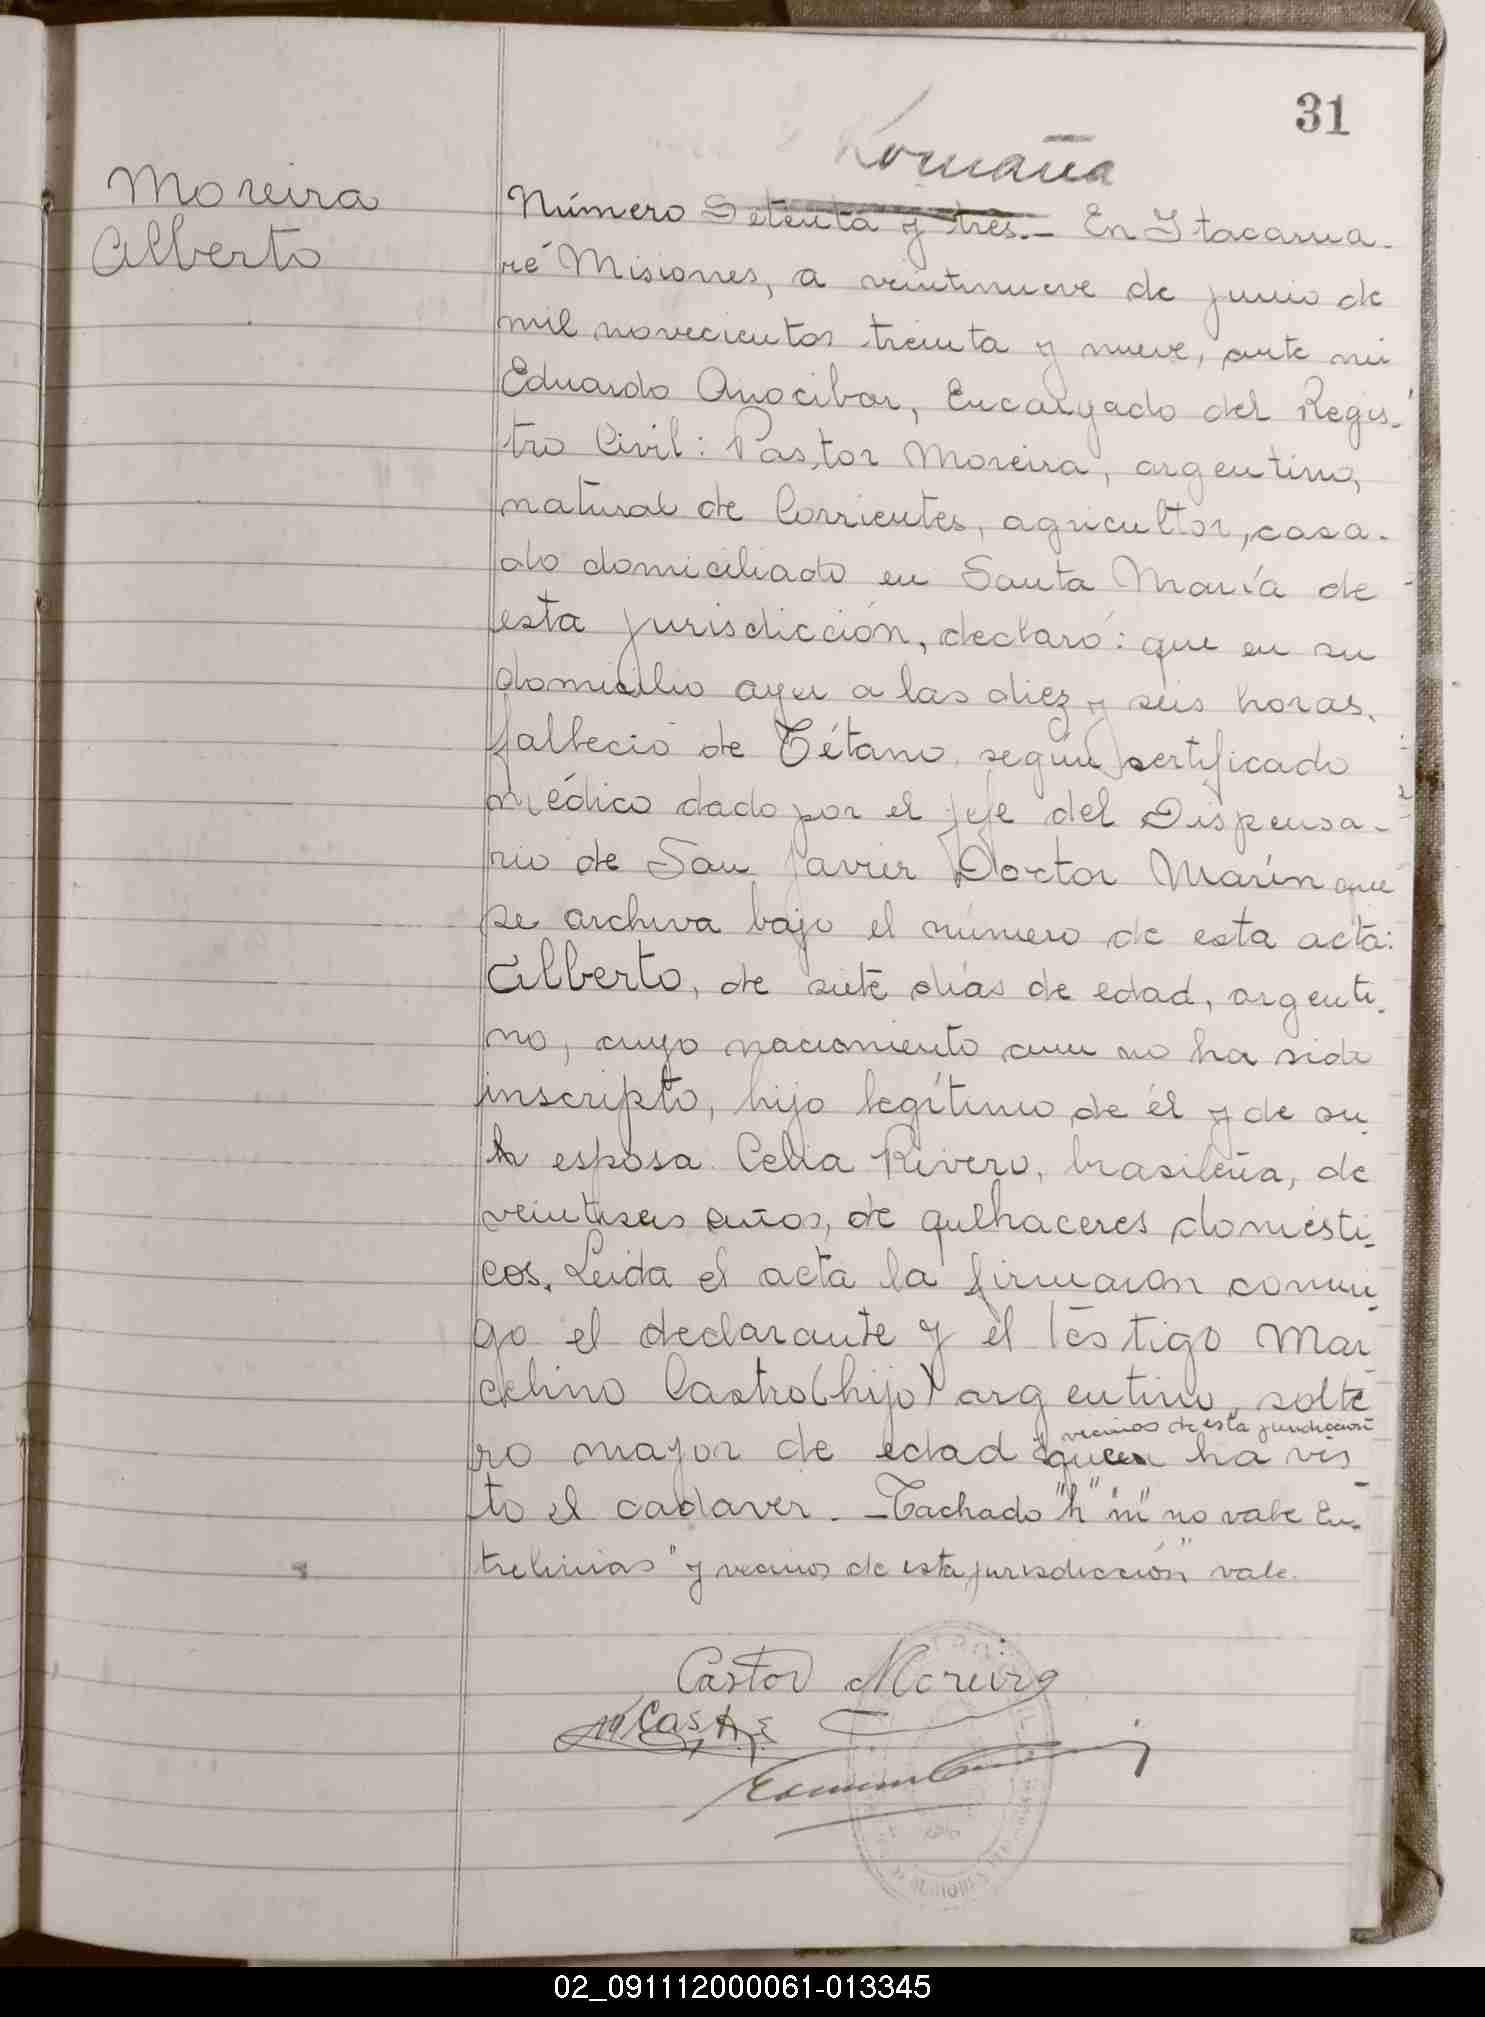 31
Moreira
Alberto
Número Setenta y tres.- En Itacarua-
ré Misiones, a veintinueve de junio de
mil novecientos treinta y nueve, ante mi
Eduardo Anocibar, Encargado del Regis-
tro Civil: Pastor Moreira, argentino,
natural de Corrientes, agricultor, casa-
do domiciliado en Santa María de
esta jurisdicción, declaró: que en su
domicilio ayer a las diez y seis horas,
fallecio de Tétano, según certificado
médico dado por el jefe del Dispensa-
rio de San Javier Doctor Marín que
se archiva bajo el número de esta acta:
Alberto, de siete días de edad, argenti-
no, cuyo nacimiento aun no ha sido
inscripto, hijo legítimo de él y de su
h esposa Celia Rivero, brasileña, de
veintiseis años, de qulhaceres domésti-
cos. Leida el acta la firmaron conmi-
go el declarante y el testigo Mar-
celino Castro (hijo) argentino, solte
y vecinos de esta jurisdicción
ro mayor de edad quien ha vis
to el cadaver.- Tachado "h" "m" no vale En-
trelinias "y vecinos de esta jurisdicción" vale.
Castor Moreira
M Castro
02_091112000061-013345